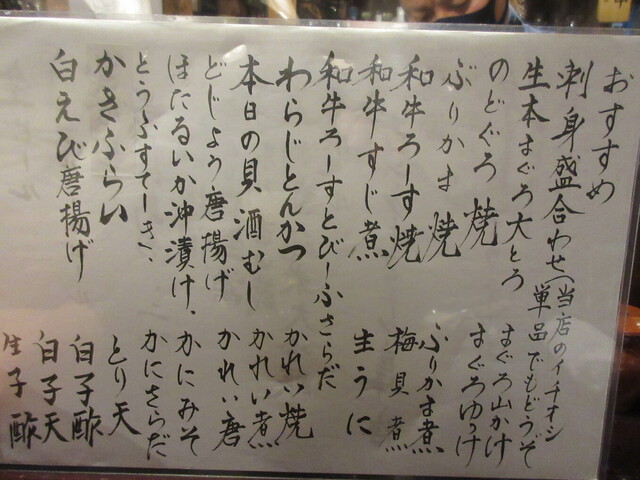 おすすめ
刺身盛合わせ(当店のイチオシ
生本まぐろ大とろ 単品でもどうぞ
のどぐろ焼 まぐろ山かけ
ぶりかま焼 まぐろゆっけ
和牛ろーす焼 ぶりかま煮
和牛すじ煮 梅貝煮
和牛ろーすとびーふさらだ 生うに
わらじとんかつ かれい焼
本日の貝酒むし かれい煮
どじょう唐揚げ かれい唐
ほたるいか沖漬け、 かにみそ
とうふすてーき、 かにさらだ
かきふらい とり天
白えび唐揚げ 白子酢
白子天
生子酢